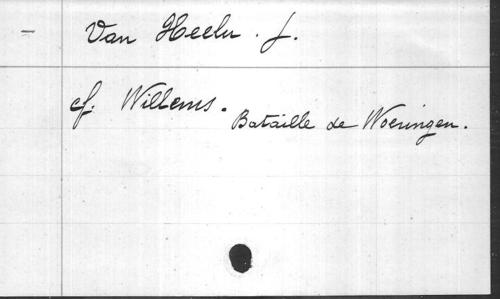 – Van Heelu. J.
cf. Willems. Bataille de Woeringen.